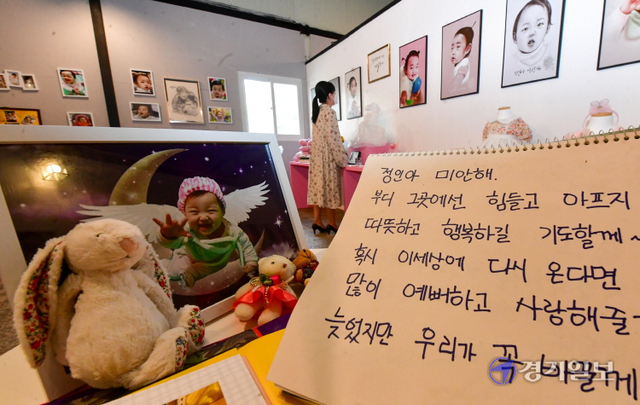 정인아 미안해.
부디 그곳에선 힘들고 아프지
따뜻하고 행복하길 기도할께~
혹시 이세상에 다시 온다면
많이 예뻐하고 사랑해줄
늦었지만 우리가 꼭 바꿀게
경기일보